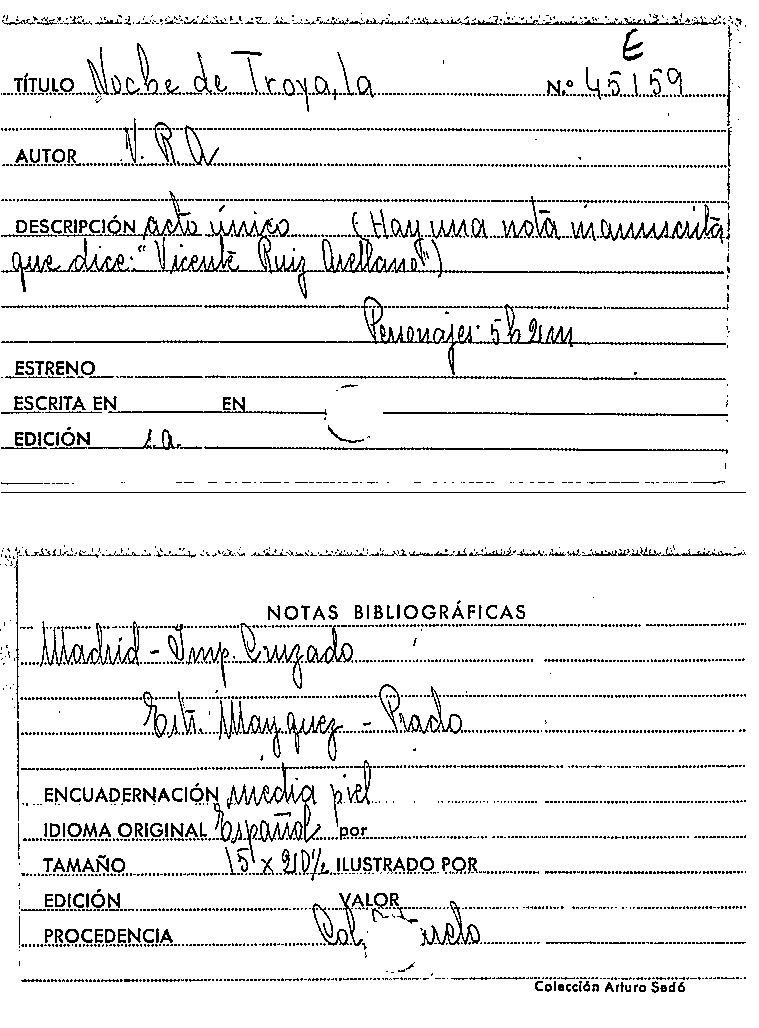 E
TÍTULO Noche de Troya, la N.º 45159
AUTOR V. R. A
DESCRIPCIÓN acto único (Hay una nota manuscrita
que dice: "Vicente Ruiz Arellano")
Personajes: 5h 2m
ESTRENO
ESCRITA EN EN
EDICIÓN s.a.
NOTAS BIBLIOGRÁFICAS
Madrid - Imp. Cruzado
Estr. Mayquez - Prado
ENCUADERNACIÓN media piel
IDIOMA ORIGINAL Español por
TAMAÑO 15 x 20½ ILUSTRADO POR
EDICIÓN VALOR
PROCEDENCIA Col.
Colección Arturo Sedó